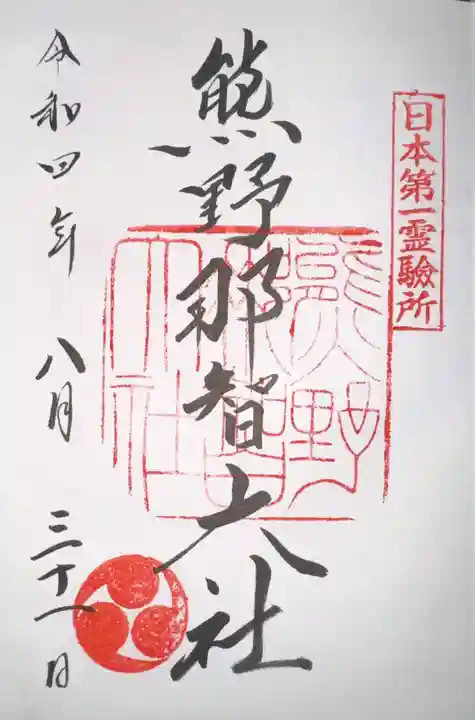 日本第一霊驗所
熊野那智大社
熊野
那智
大社
令和四年八月三十一日